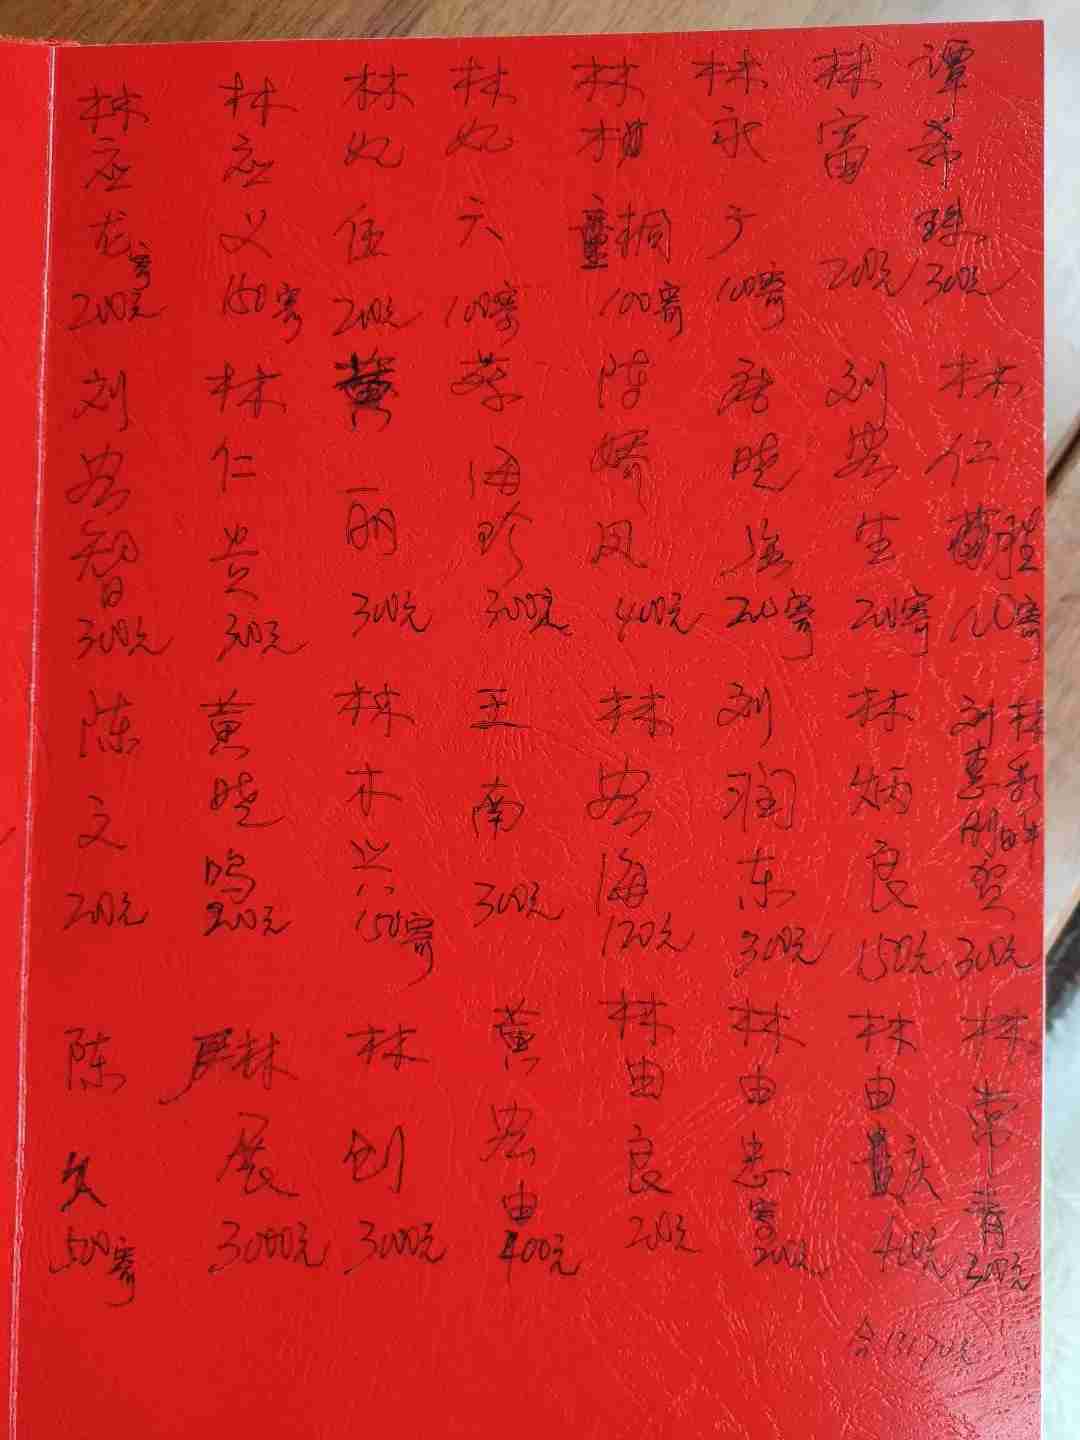 谭希珠 300元
林富 200元
林永于 100寄
林桐 100寄
林妃六 100寄
林妃伍 200元
林应义 150寄
林应龙 寄 200元
林仁 100寄
刘宏生 200寄
晓 200寄
陈娇凤 400元
蔡海珍 300元
黄丽 300元
林仁贵 300元
刘宏智 300元
刘惠刚 贺 300元
林炳良 150元
刘润东 300元
林宏海 120元
王南 300元
林木兴 150寄
黄晓鸣 200元
陈文 200元
林常青 300元
林由庆 400元
林由忠 寄 200元
林由良 200元
黄宏由 400元
林创 3000元
林展 3000元
陈 500寄
合